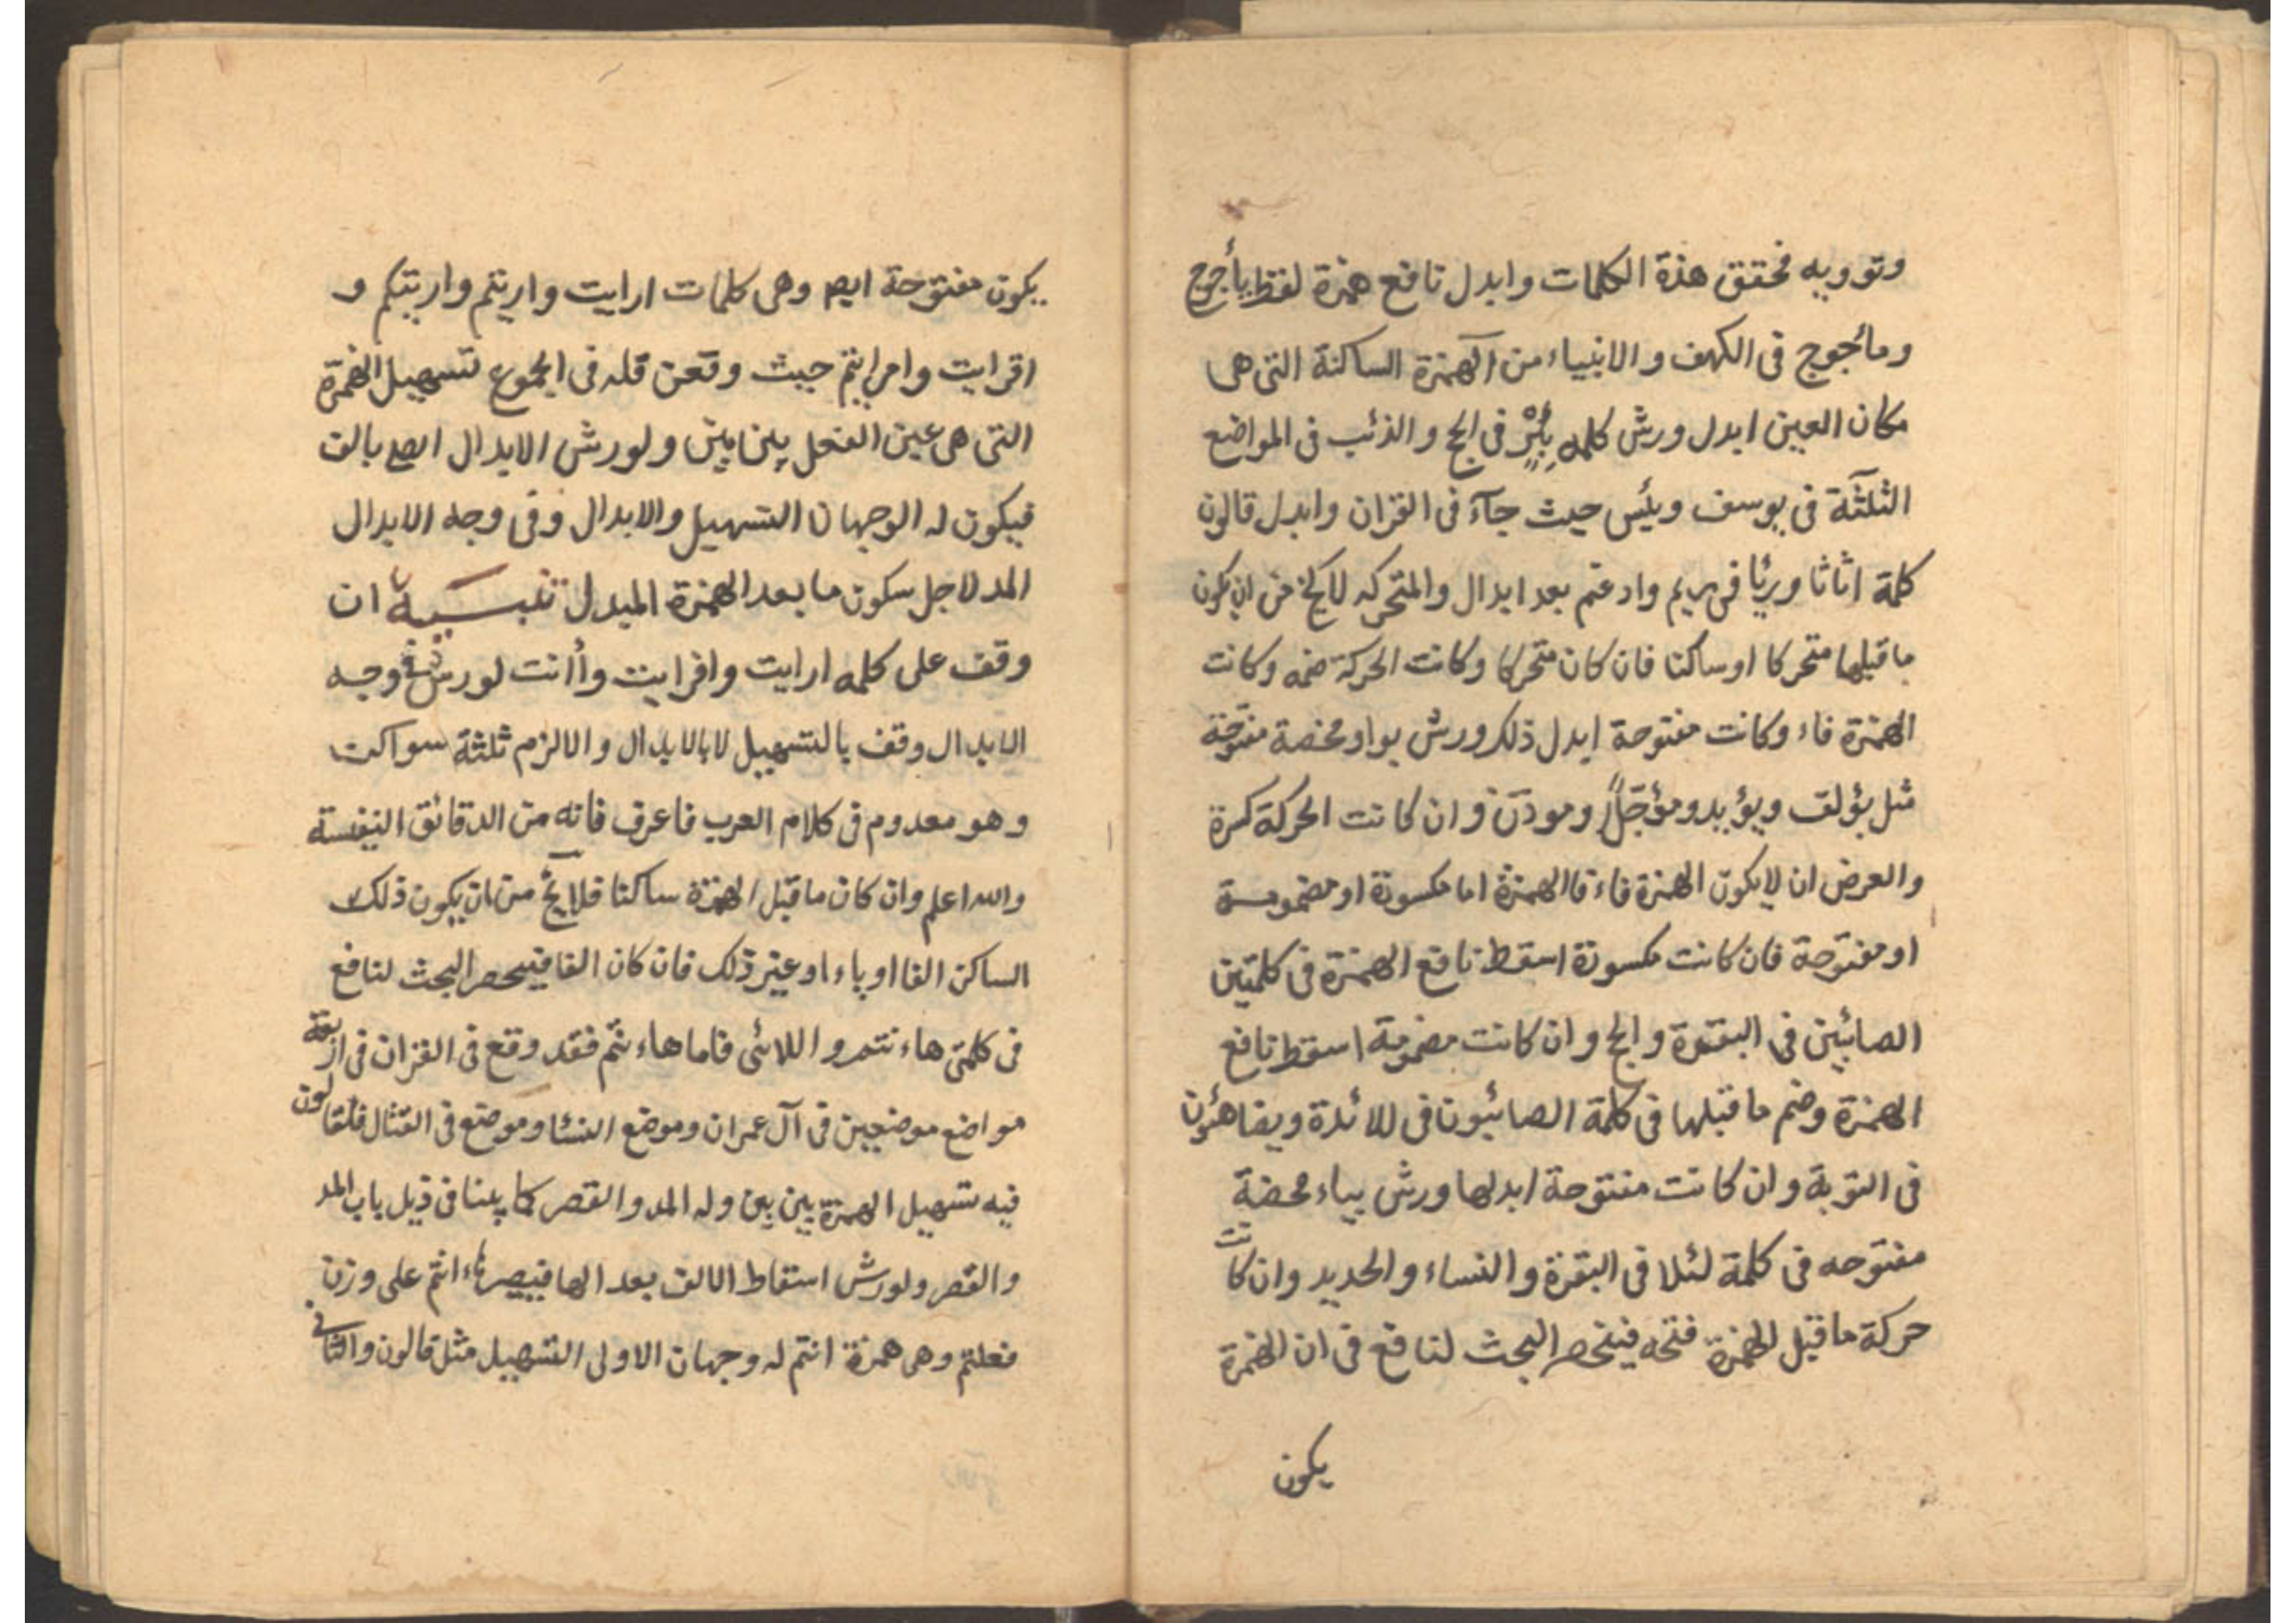 وتوويه فحقق هذة الكلمات وابدل نافع همزة لفظ يأجوج
ومأجوج فى الكهف والانبياء من الهمزة الساكنة التى هى
مكان العين ابدل ورش كلمه بئر فى الحج والذئب فى المواضع
الثلثة فى يوسف وبئس حيث جآء فى القران وابدل قالون
كلمة اثاثا ورئيا فى مريم وادغم بعد ابدال والمتحركه لا يخ من ان يكون
ما قبلها متحركا او ساكنا فان كان متحركا وكانت الحركة ضمه وكانت
الهمزة فاء وكانت مفتوحة ابدل ذلك ورش بواو محضة مفتوحة
مثل يؤلف ويؤيد ومؤجلاً وموذن وان كانت الحركة كسرة
والعرض ان لا يكون الهمزة فاء فاالهمزة اما مكسورة او مضمومة
او مفتوحة فان كانت مكسورة اسقط نافع الهمزة فى كلمتين
الصابئين فى البقرة والحج وان كانت مضمومة اسقط نافع
الهمزة وضم ما قبلها فى كلمة الصائبون فى المائدة ويضاهئون
فى التوبة وان كانت مفتوحة ابدلها ورش بياء محضة
مفتوحه فى كلمة لئلا فى البقرة والنساء والحديد وان كانت
حركة ما قبل الهمزة فتحه فينحصر البحث لنافع فى ان الهمزة
يكون
يكون مفتوحة ايضا وهى كلمات ارايت واريتم واريتكم و
افرايت وافرايتم حيث وقعن فله فى الجموع تسهيل الهمزة
التى هى عين الفعل بين بين ولورش الابدال ايضا بالف
فيكون له الوجهان التسهيل والابدال وفى وجه الابدال
المد لاجل سكون ما بعد الهمزة المبدل تنبيه ان
وقف على كلمه ارايت وافرايت وأانت لورش فى وجه
الابدال وقف بالتسهيل لا بالابدال والا لزم ثلثة سواكن
وهو معدوم فى كلام العرب فاعرف فانه من الدقائق النفيسة
والله اعلم وان كان ما قبل الهمزة ساكنا فلا يخ من ان يكون ذلك
الساكن الفا او ياء او غير ذلك فان كان الفا فينحصر البحث لنافع
فى كلمتى هاءنتم واللائى فاما هاءنتم فقد وقع فى القران فى اربعة
مواضع موضعين فى آل عمران وموضع النسا وموضع فى القتال فلقالون
فيه تسهيل الهمزة بين بين وله المد والقصر كما بينا فى ذيل باب المد
والقصر ولورش اسقاط الالف بعد الها فيصير هاء انتم على وزن
فعلتم وهى همزة انتم له وجهان الاولى التسهيل مثل قالون والثانى